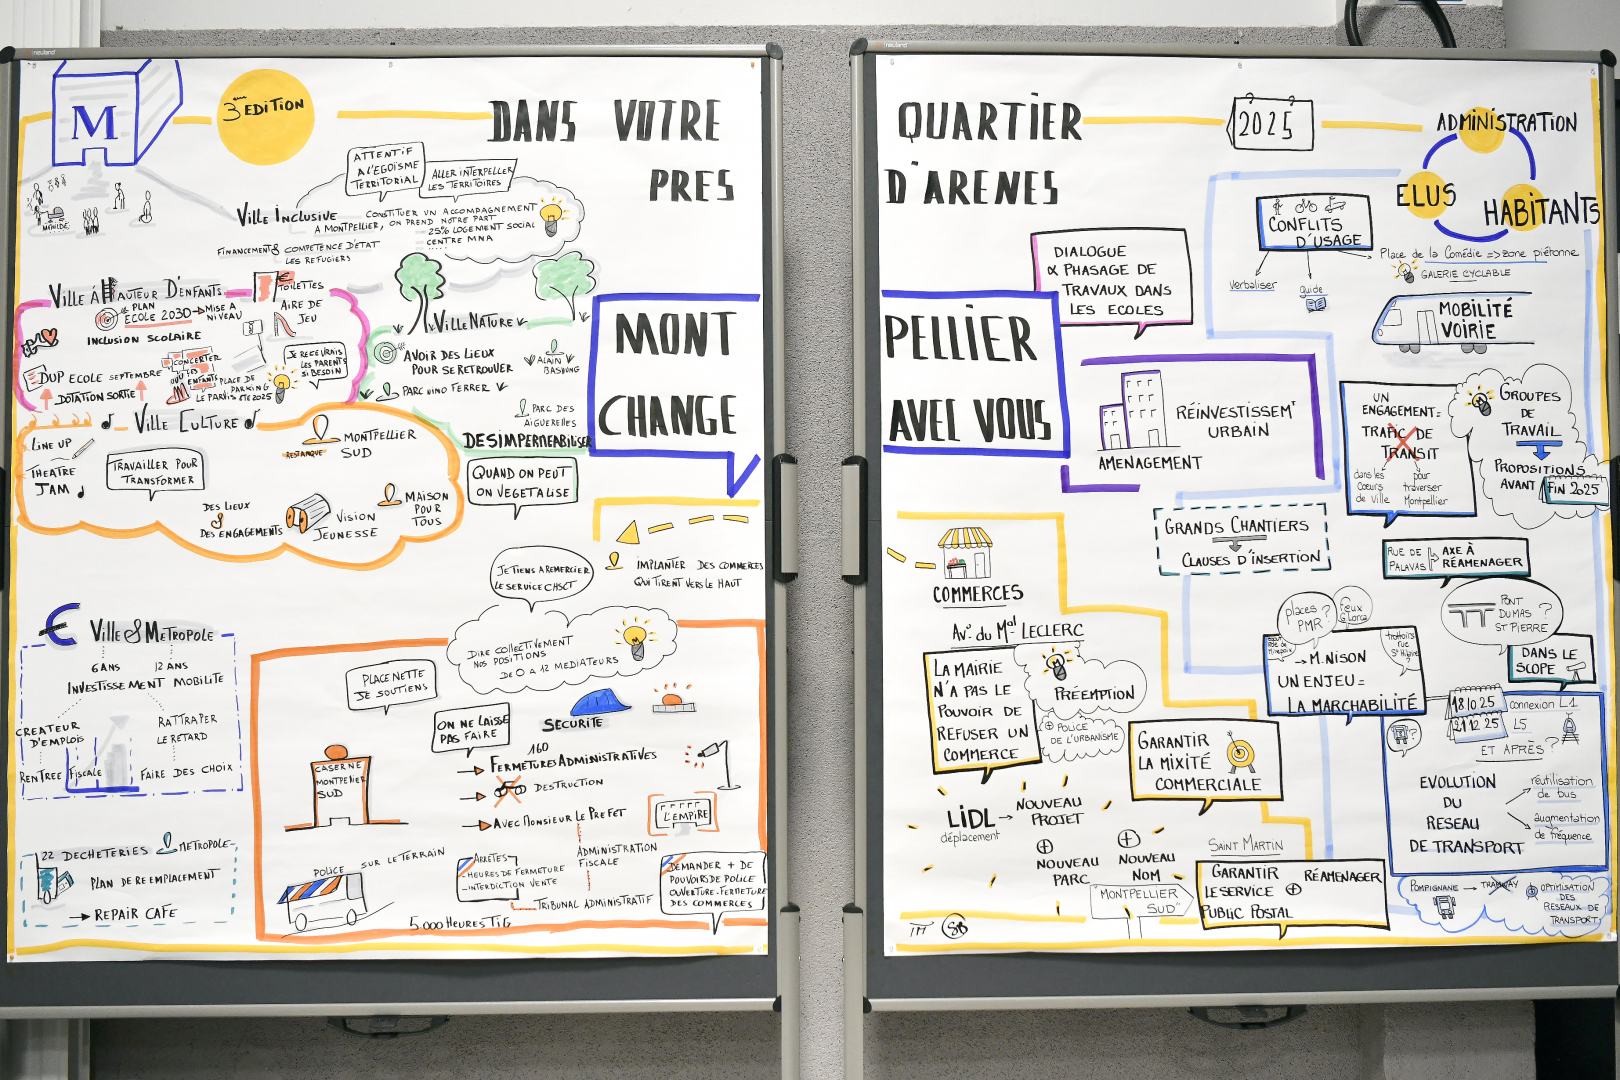 M
3ème EDITION
DANS VOTRE
PRES
ATTENTIF
A L'EGOÏSME
TERRITORIAL
ALLER INTERPELLER
LES TERRITOIRES
VILLE INCLUSIVE
CONSTITUER UN ACCOMPAGNEMENT
A MONTPELLIER, ON PREND NOTRE PART
25% LOGEMENT SOCIAL
CENTRE MNA
FINANCEMENTS COMPETENCE D'ETAT
LES REFUGIERS
VILLE À HAUTEUR D'ENFANTS
TOILETTES
PLAN
ECOLE 2030 → MISE A
NIVEAU
AIRE DE
JEU
INCLUSION SCOLAIRE
DUP ECOLE SEPTEMBRE
DOTATION SORTIE
CONCERTER
ENFANTS
PLACE DE
PARKING
LE PARVIS ETE 2025
JE RECEVRAIS
LES PARENTS
SI BESOIN
VILLE NATURE
AVOIR DES LIEUX
POUR SE RETROUVER
ALAIN
BASHUNG
PARC NINO FERRER
PARC DES
AIGUERELLES
DESIMPERMEABILISER
QUAND ON PEUT
ON VEGETALISE
MONT
CHANGE
VILLE CULTURE
LINE UP
THEATRE
JAM
TRAVAILLER POUR
TRANSFORMER
RESTANQUE
MONTPELLIER
SUD
DES LIEUX
&
DES ENGAGEMENTS
VISION
JEUNESSE
MAISON
POUR
TOUS
IMPLANTER DES COMMERCES
QUI TIRENT VERS LE HAUT
JE TIENS A REMERCIER
LE SERVICE CHSCT
€ VILLE & METROPOLE
6 ANS
12 ANS
INVESTISSEMENT MOBILITE
CREATEUR
D'EMPLOIS
RATTRAPER
LE RETARD
RENTREE FISCALE
FAIRE DES CHOIX
22 DECHETERIES
METROPOLE
PLAN DE REEMPLACEMENT
→ REPAIR CAFE
DIRE COLLECTIVEMENT
NOS POSITIONS
DE 0 A 12 MEDIATEURS
PLACE NETTE
JE SOUTIENS
ON NE LAISSE
PAS FAIRE
SECURITE
160
FERMETURES ADMINISTRATIVES
DESTRUCTION
AVEC MONSIEUR LE PREFET
L'EMPIRE
CASERNE
MONTPELLIER
SUD
POLICE
SUR LE TERRAIN
ARRETES
- HEURES DE FERMETURE
- INTERDICTION VENTE
ADMINISTRATION
FISCALE
TRIBUNAL ADMINISTRATIF
5.000 HEURES TIG
DEMANDER + DE
POUVOIRS DE POLICE
OUVERTURE-FERMETURE
DES COMMERCES
QUARTIER
D'ARENES
2025
ADMINISTRATION
ELUS
HABITANTS
DIALOGUE
& PHASAGE DE
TRAVAUX DANS
LES ECOLES
CONFLITS
D'USAGE
Verbaliser
guide
Place de la Comédie => zone piétonne
GALERIE CYCLABLE
MOBILITÉ
VOIRIE
PELLIER
AVEC VOUS
RÉINVESTISSEMT
URBAIN
AMENAGEMENT
UN
ENGAGEMENT =
TRAFIC DE
TRANSIT
dans les
Coeurs
de ville
pour
traverser
Montpellier
GROUPES
DE
TRAVAIL
PROPOSITIONS
AVANT FIN 2025
GRANDS CHANTIERS
CLAUSES D'INSERTION
RUE DE
PALAVAS
AXE À
RÉAMENAGER
COMMERCES
Av. du Mal LECLERC
LA MAIRIE
N'A PAS LE
POUVOIR DE
REFUSER UN
COMMERCE
PRÉEMPTION
⊕ POLICE
DE L'URBANISME
GARANTIR
LA MIXITÉ
COMMERCIALE
places ?
PMR
Feux
G. Lorca
trottoirs
rue
St Hilaire
?
→ M. NISON
UN ENJEU =
LA MARCHABILITÉ
PONT
DUMAS ?
ST PIERRE
DANS LE
SCOPE
18/10 25
21/12 25
connexion L1
L5
ET APRÈS ?
EVOLUTION
DU
RESEAU
DE TRANSPORT
réutilisation
de bus
augmentation
de fréquence
LIDL
déplacement
→ NOUVEAU
PROJET
⊕
NOUVEAU
PARC
⊕
NOUVEAU
NOM
"MONTPELLIER
SUD"
SAINT MARTIN
GARANTIR
LE SERVICE
PUBLIC POSTAL
⊕ RÉAMENAGER
POMPIGNANE → TRAMWAY
OPTIMISATION
DES
RESEAUX DE
TRANSPORT
TM SB